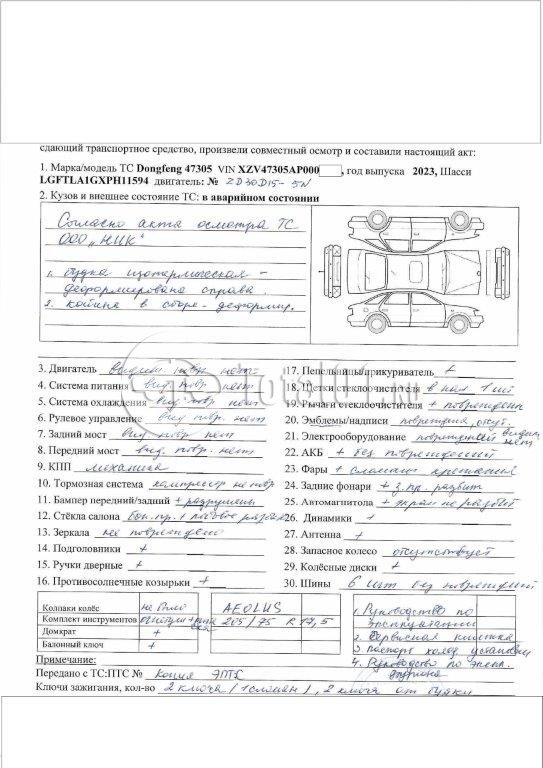 сдающий транспортное средство, произвели совместный осмотр и составили настоящий акт:
1. Марка/модель ТС Dongfeng 47305 VIN XZV47305AP000, год выпуска 2023, Шасси
LGFTLA1GXPH11594 двигатель: № ZD30D15-5N
2. Кузов и внешнее состояние ТС: в аварийном состоянии
Согласно акта осмотра ТС
ООО „НИК"
1. будка изотермическая -
деформирована справа
2. кабина в сборе - деформир.
3. Двигатель видим. повр. нет
4. Система питания вид. повр. нет
5. Система охлаждения вид. повр. нет
6. Рулевое управление вид. повр. нет
7. Задний мост вид. повр. нет
8. Передний мост вид. повр. нет
9. КПП механика
10. Тормозная система компрессор не повр
11. Бампер передний/задний + разрушены
12. Стёкла салона бок. пр. + лобовое
13. Зеркала не повреждено
14. Подголовники +
15. Ручки дверные +
16. Противосолнечные козырьки +
17. Пепельницы/прикуриватель +
18. Щетки стеклоочистителя в нал. 1 шт
19. Рычаги стеклоочистителя + повреждены
20. Эмблемы/надписи повреждения, отсут.
21. Электрооборудование повреждений видим нет
22. АКБ + без повреждений
23. Фары + сломаны крепления
24. Задние фонари + з.пр. разбит
25. Автомагнитола + экран не разбит
26. Динамики +
27. Антенна +
28. Запасное колесо отсутствует
29. Колёсные диски +
30. Шины 6 шт без повреждений
Колпаки колёс не было AEOLUS
Комплект инструментов 205/75 R 17,5
Домкрат +
Балонный ключ +
1. Руководство по
эксплуатации
2. Сервисная книжка
3. Паспорт холод. установки
4. Руководство по экспл.
Примечание:
Передано с ТС:ПТС № Копия ЭПТС
Ключи зажигания, кол-во 2 ключа (1 сломан), 2 ключа от будки